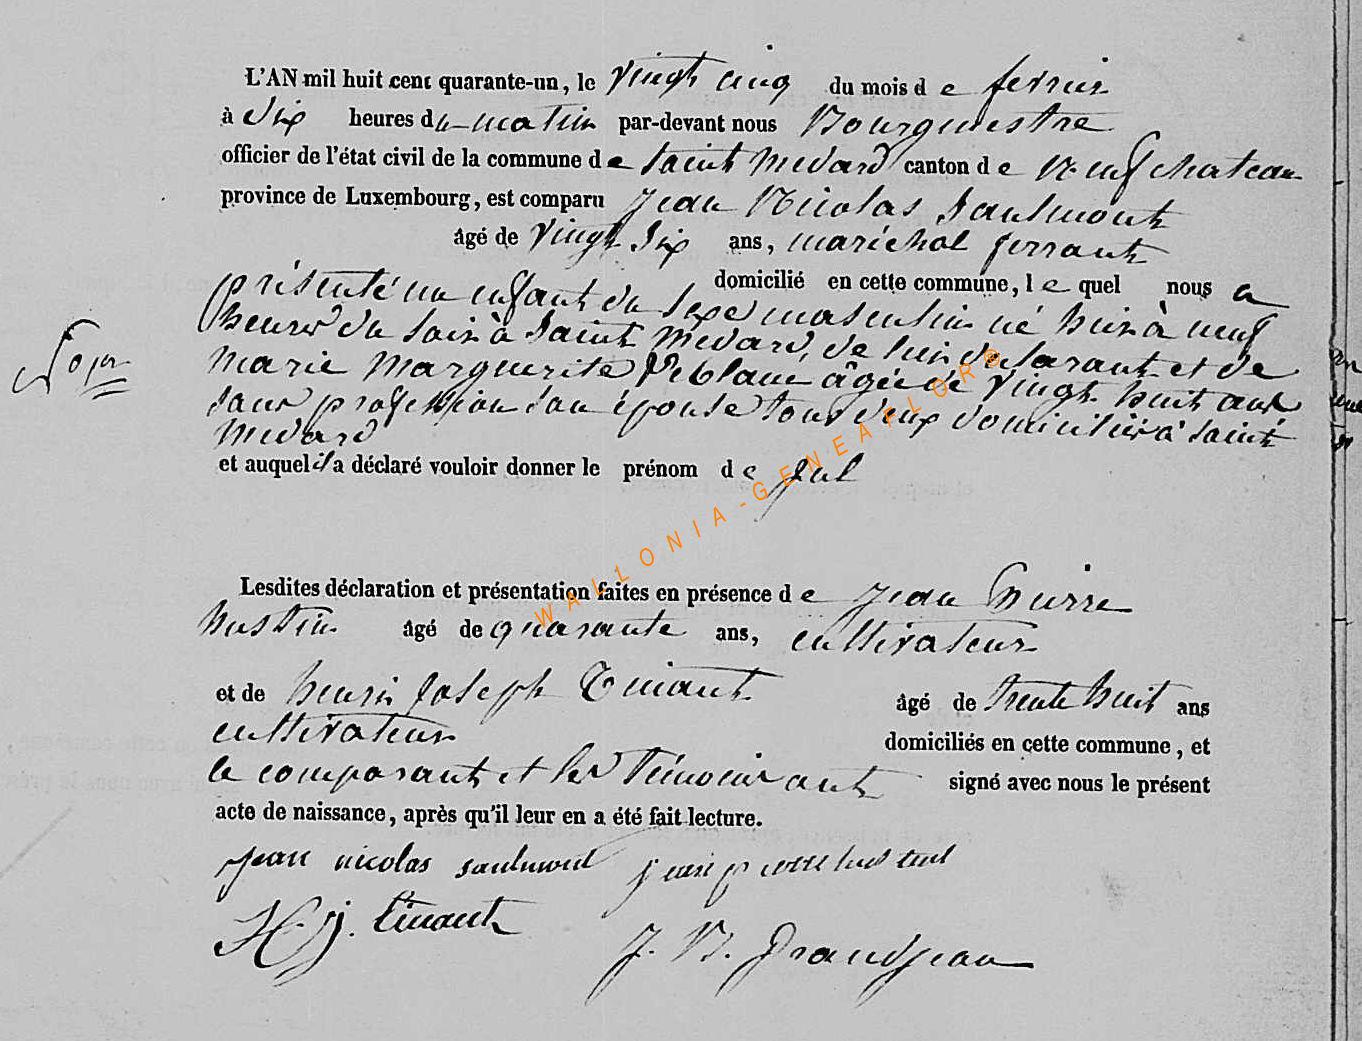 L'AN mil huit cent quarante-un, le vingt cinq du mois de fevrier
à dix heures du matin par-devant nous Bourguestre
officier de l'état civil de la commune de Saint Médard canton de Neufchateau
province de Luxembourg, est comparu Jean Nicolas Saulmont
âgé de vingt six ans, maréchal ferrant
domicilié en cette commune, lequel nous a
présenté un enfant du sexe masculin né hier à neuf
heures du soir à Saint Médard, de lui déclarant et de
Marie Marguerite Leblanc âgée de vingt huit ans
sans profession son épouse tous deux domiciliés à Saint
Médard
et auquel il a déclaré vouloir donner le prénom de
WALLONIA-GENEAFLOR®
Lesdites déclaration et présentation faites en présence de Jean Pierre
hustin âgé de quarante ans, cultivateur
et de henri Joseph Tinant âgé de trente huit ans
cultivateur domiciliés en cette commune, et
le comparant et les témoins ont signé avec nous le présent
acte de naissance, après qu'il leur en a été fait lecture.
jean nicolas saulmont jean pierre hustin
H. j. Tinant
J. N. Grandjean